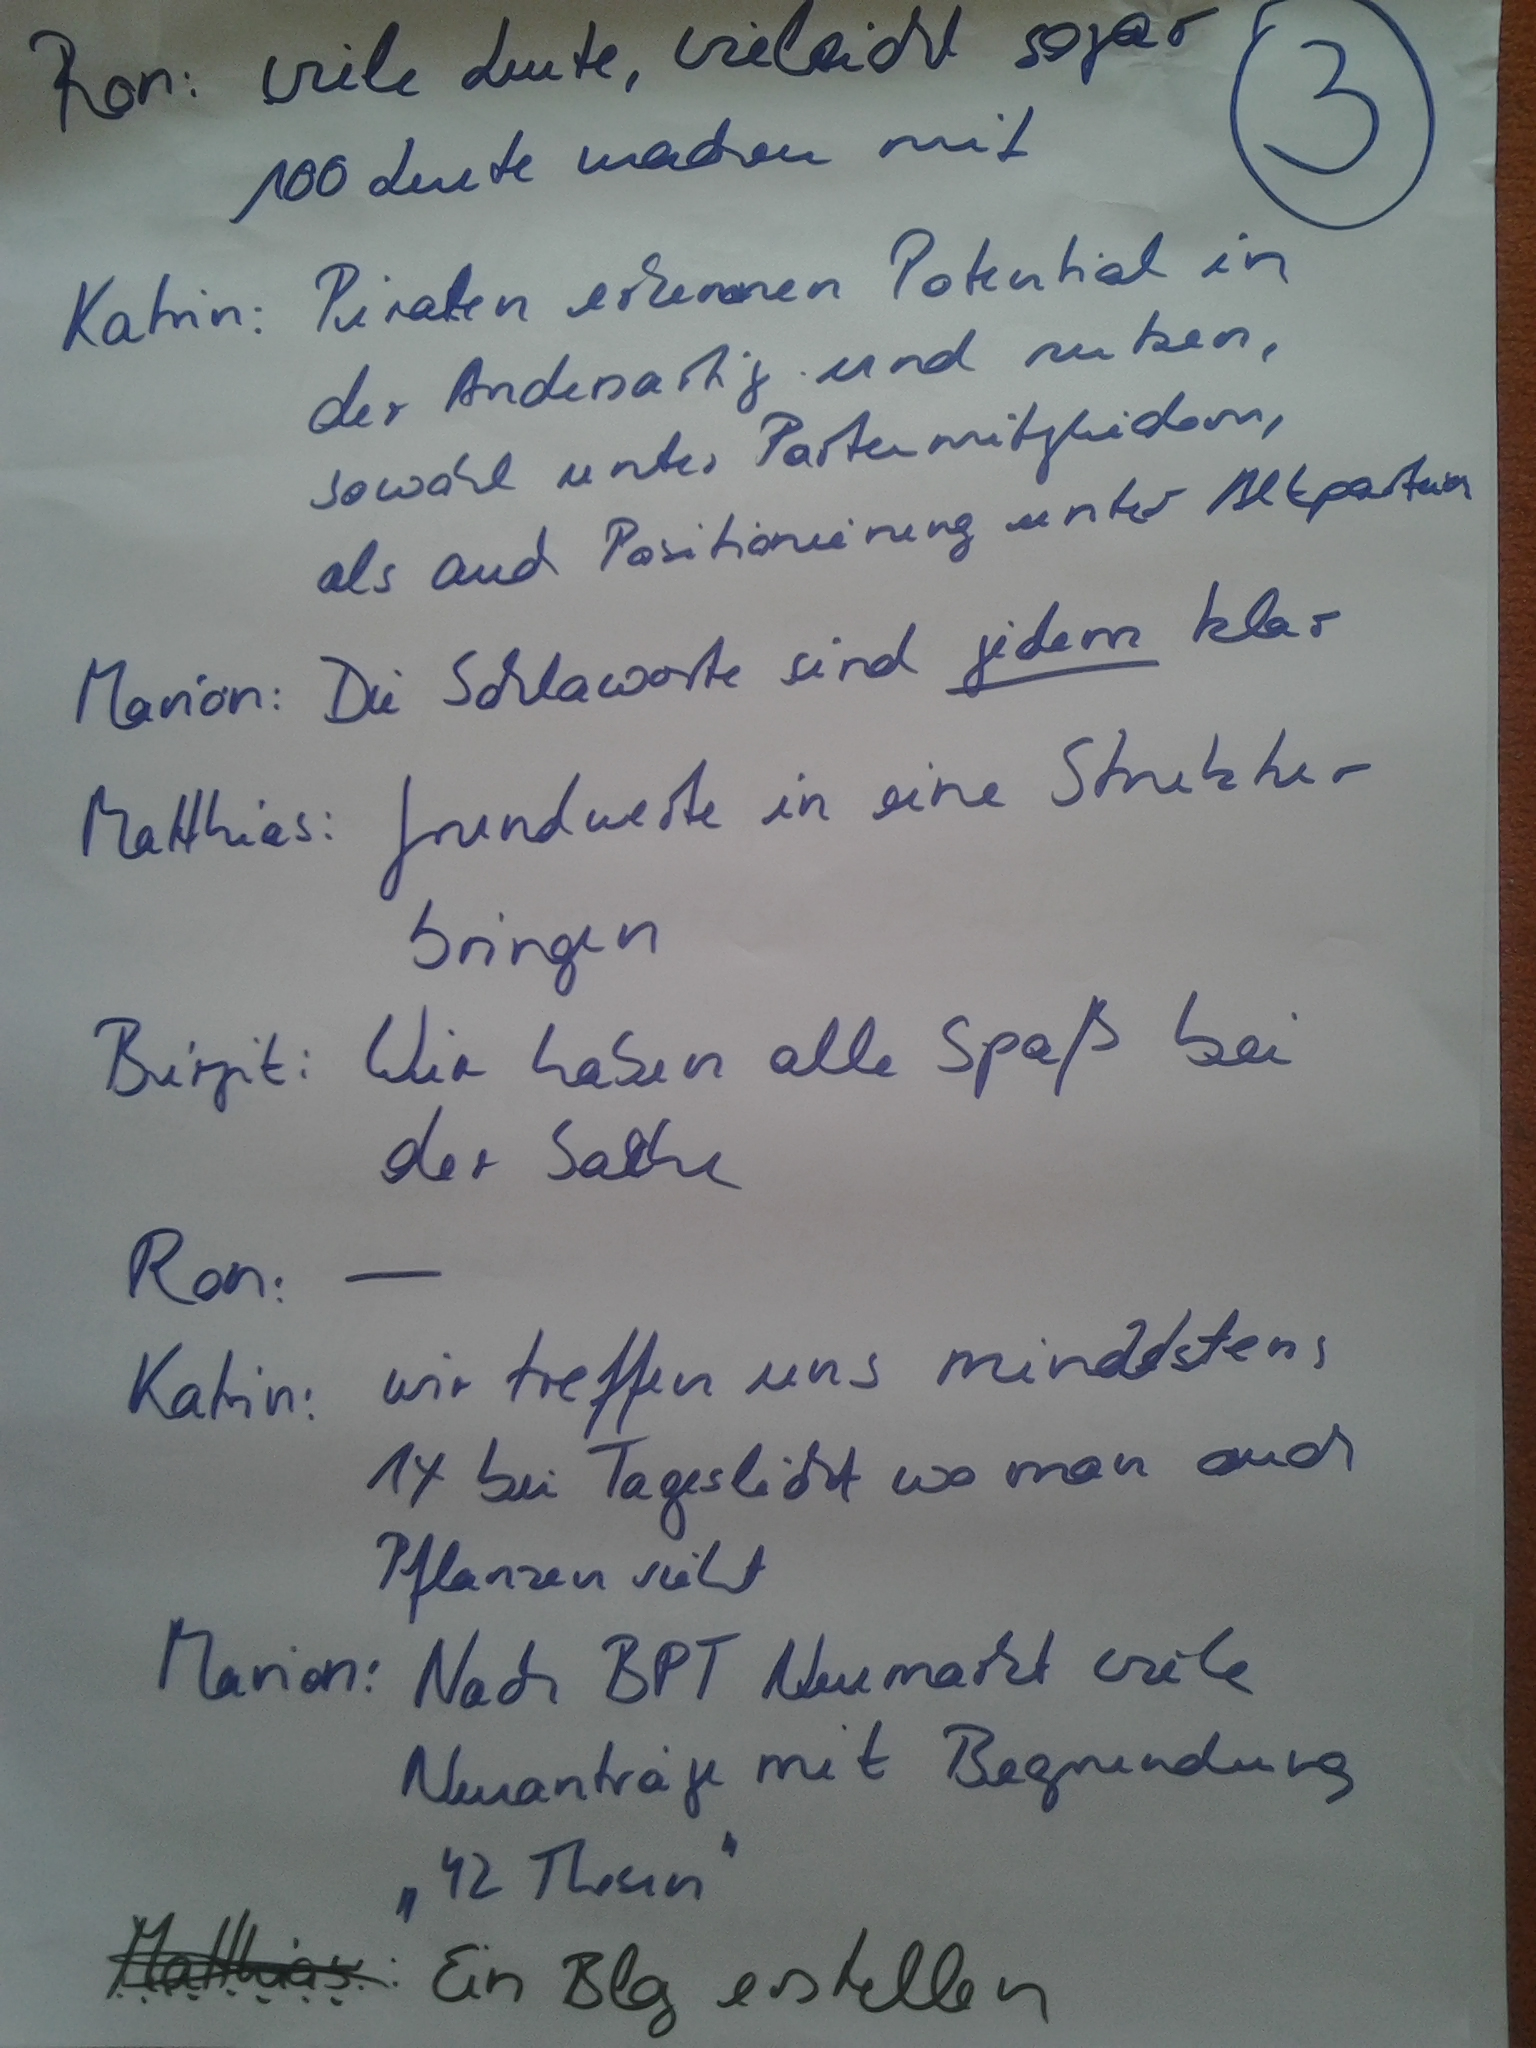 Ron: viele Leute, vieleicht sogar
3
100 Leute machen mit
Katrin: Piraten erkennen Potential in
der Andersartig. und nutzen,
sowohl unter Parteimitgliedern,
als auch Positionierung unter Altparteien
Marion: Die Schlaworte sind jedem klar
Matthias: Grundwerte in eine Struktur
bringen
Birgit: Wir haben alle Spaß bei
der Sache
Ron: —
Katrin: wir treffen uns mindestens
1x bei Tageslicht wo man auch
Pflanzen sieht
Marion: Nach BPT Neumarkt viele
Neuanträge mit Begründung
„42 Thesen"
Matthias: Ein Blog erstellen